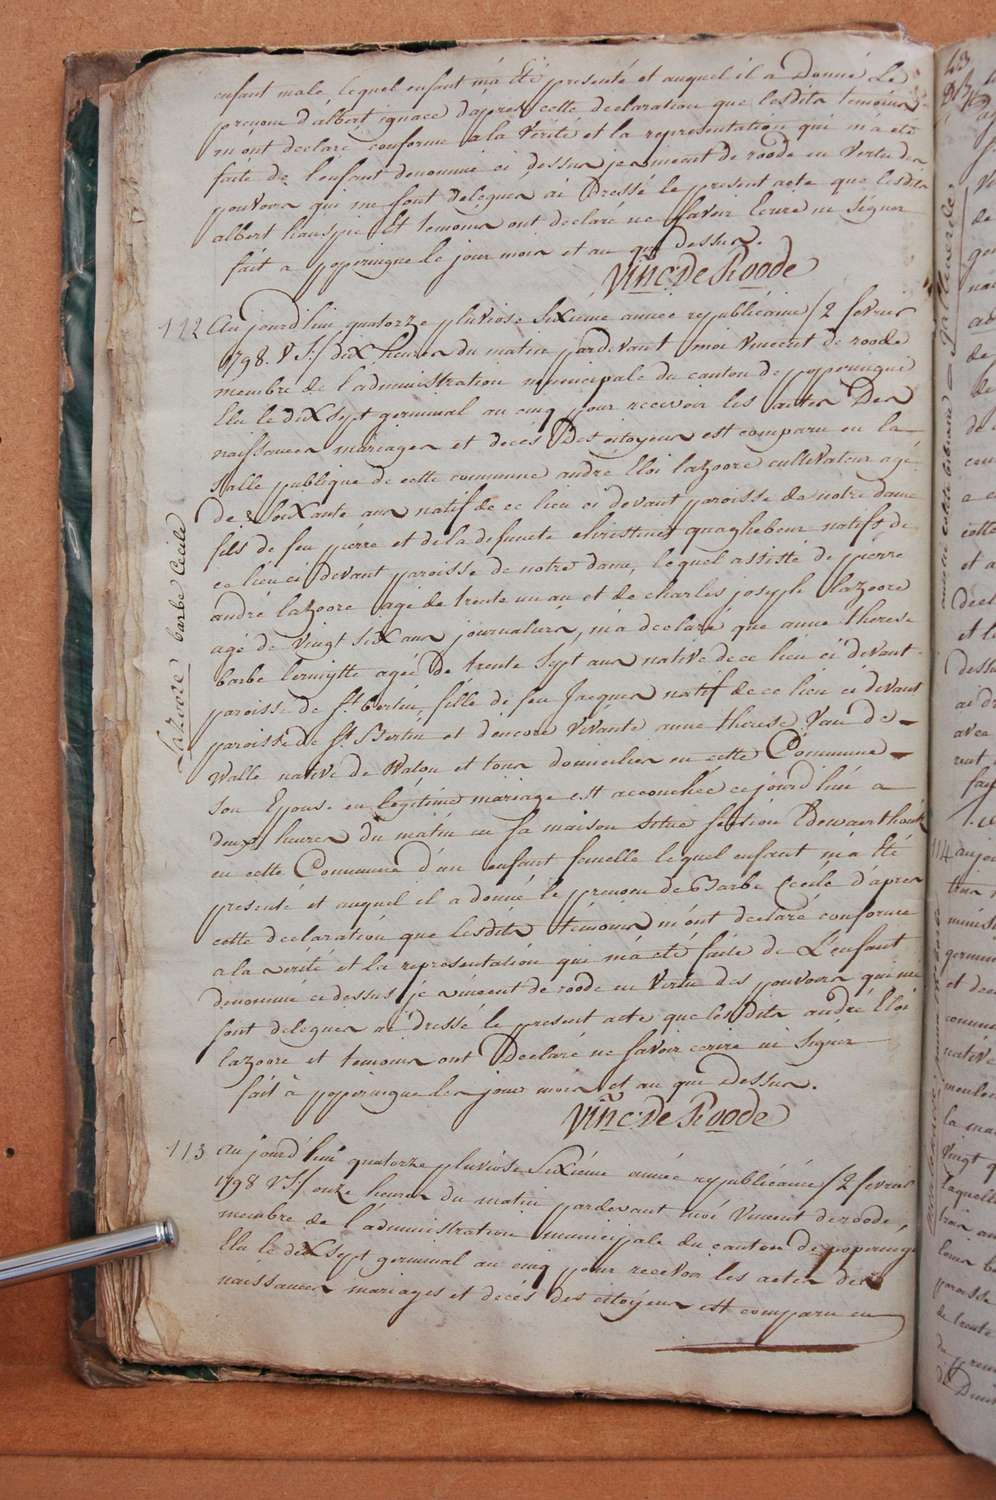 enfant male lequel enfant m'a Eté presenté et auquel il a Donné Le
prenom d'albert ignace d'apres cette declaration que lesdits temoins
m'ont declaré conforme a la Verité et la representation qui m'a eté
faite de l'enfant denommé ci dessus je vincent de roode en vertu des
pouvoirs qui me sont delegués ai Dressé le present acte que lesdits
albert et temoins ont declaré ne savoir Ecrire ni Signer
fait a poperingue le jour mois et an que dessus.
Vinc: De Roode
112 Aujourd'hui quatorze pluviose Sixieme année republicaine / 2 fevrier
1798. V S / dix heures du matin pardevant moi Vincent de roode
membre de l'administration municipale du canton de poperingue
Elu le dix sept germinal an cinq pour recevoir les actes Des
naissances mariages et decès Des citoyens est comparu en la
Salle publique de cette commune andré Eloi lazoore cultivateur agé
De Soixante ans natif de ce lieu ci devant paroisse de notre dame
fils de feu pierre et de la defuncte christine quaghebeur natifs de
ce lieu ci devant paroisse de notre dame, lequel assisté de pierre
andré lazoore agé de trente un an et de charles joseph lazoore
agé de vingt six ans journaliers, m'a declaré que anne therese
barbe lermytte agée De trente Sept ans native de ce lieu ci devant
paroisse de St bertin fille de feu Jacques natif de ce lieu ci devant
paroisse de St Bertin et d'encore Vivante anne therese Van de
Walle native de Watou et tous domiciliés en cette Commune
son Epouse en légitime mariage est accouchée cejourd'hui a
deux heures du matin en sa maison située section Edewaerthoek
en cette Commune d'un enfant femelle lequel enfant m'a Eté
presenté et auquel il a donné le prenom de Barbe Cecile d'apres
cette declaration que lesdits témoins m'ont declaré conforme
a la verité et la representation qui m'a eté faite de L'enfant
denommé ci dessus je vincent de roode en Vertu des pouvoirs qui me
sont delegués ai dressé le present acte que lesdits andré Eloi
lazoore et temoins ont Declaré ne savoir ecrire ni Signer
fait à poperingue les jour mois et an que Dessus.
Vinc: De Roode
Lazoore barbe Cecile
113 Aujourd'hui quatorze pluviose Sixieme année republicaine / 2 fevrier
1798 V S / onze heures du matin pardevant moi Vincent de roode
membre de l'administration municipale du canton de poperingue
Elu le dix sept germinal an cinq pour recevoir les actes des
naissances mariages et decès des citoyens est comparu en
114 aujou